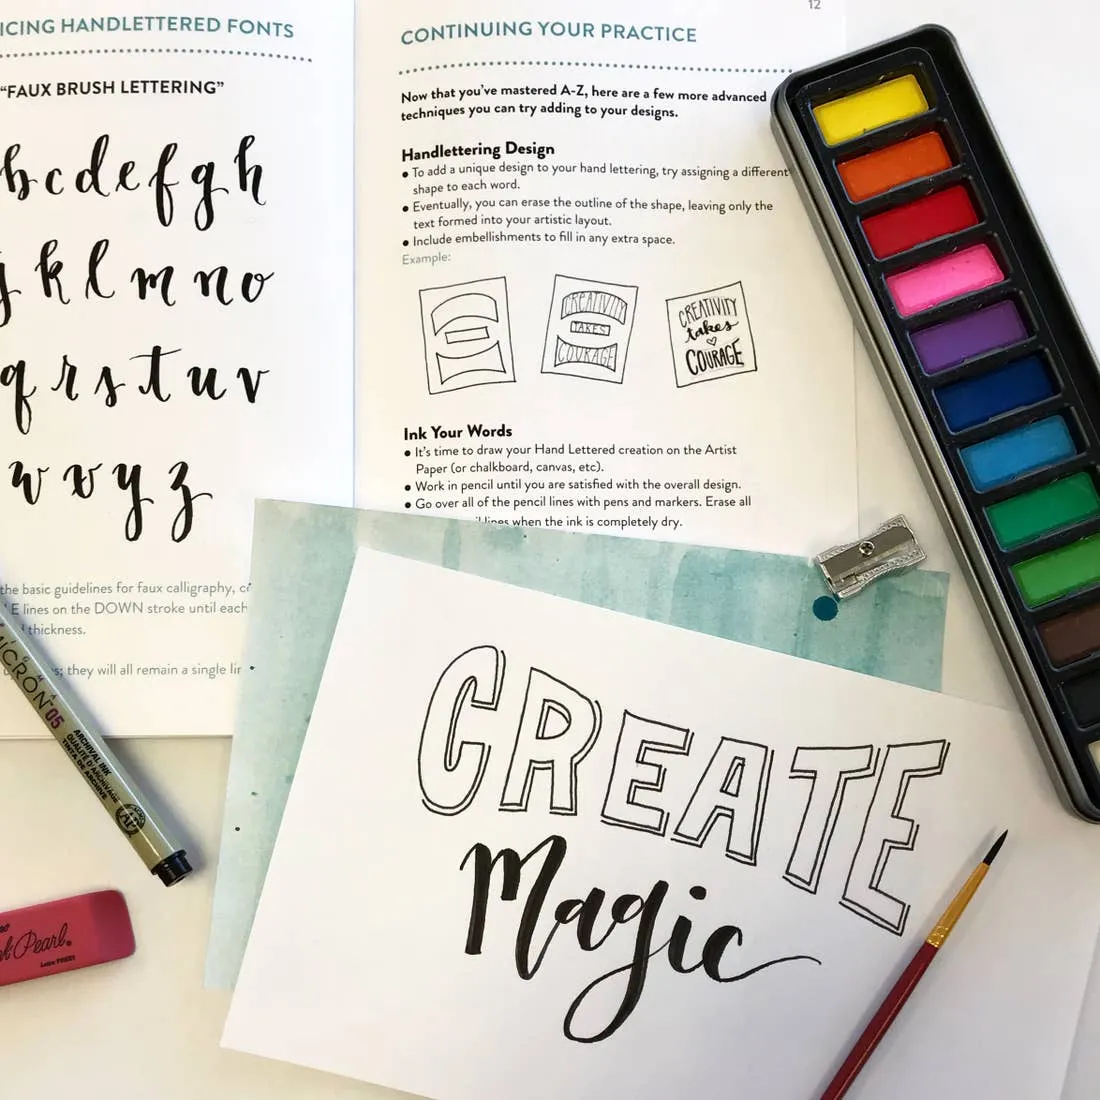 ICING HANDLETTERED FONTS
"FAUX BRUSH LETTERING"
b c d e f g h
j k l m n o
q r s t u v
w x y z
the basic guidelines for faux calligraphy,
E lines on the DOWN stroke until each
thickness.
they will all remain a single
12
CONTINUING YOUR PRACTICE
Now that you've mastered A-Z, here are a few more advanced
techniques you can try adding to your designs.
Handlettering Design
• To add a unique design to your hand lettering, try assigning a different
shape to each word.
• Eventually, you can erase the outline of the shape, leaving only the
text formed into your artistic layout.
• Include embellishments to fill in any extra space.
Example:
CREATIVITY
TAKES
COURAGE
CREATIVITY
takes
COURAGE
Ink Your Words
• It's time to draw your Hand Lettered creation on the Artist
Paper (or chalkboard, canvas, etc).
• Work in pencil until you are satisfied with the overall design.
• Go over all of the pencil lines with pens and markers. Erase all
lines when the ink is completely dry.
CREATE
Magic
MICRON 05
ARCHIVAL INK
QUALITÉ D'ARCHIVAGE
TINTA DE ARCHIVE
Pearl